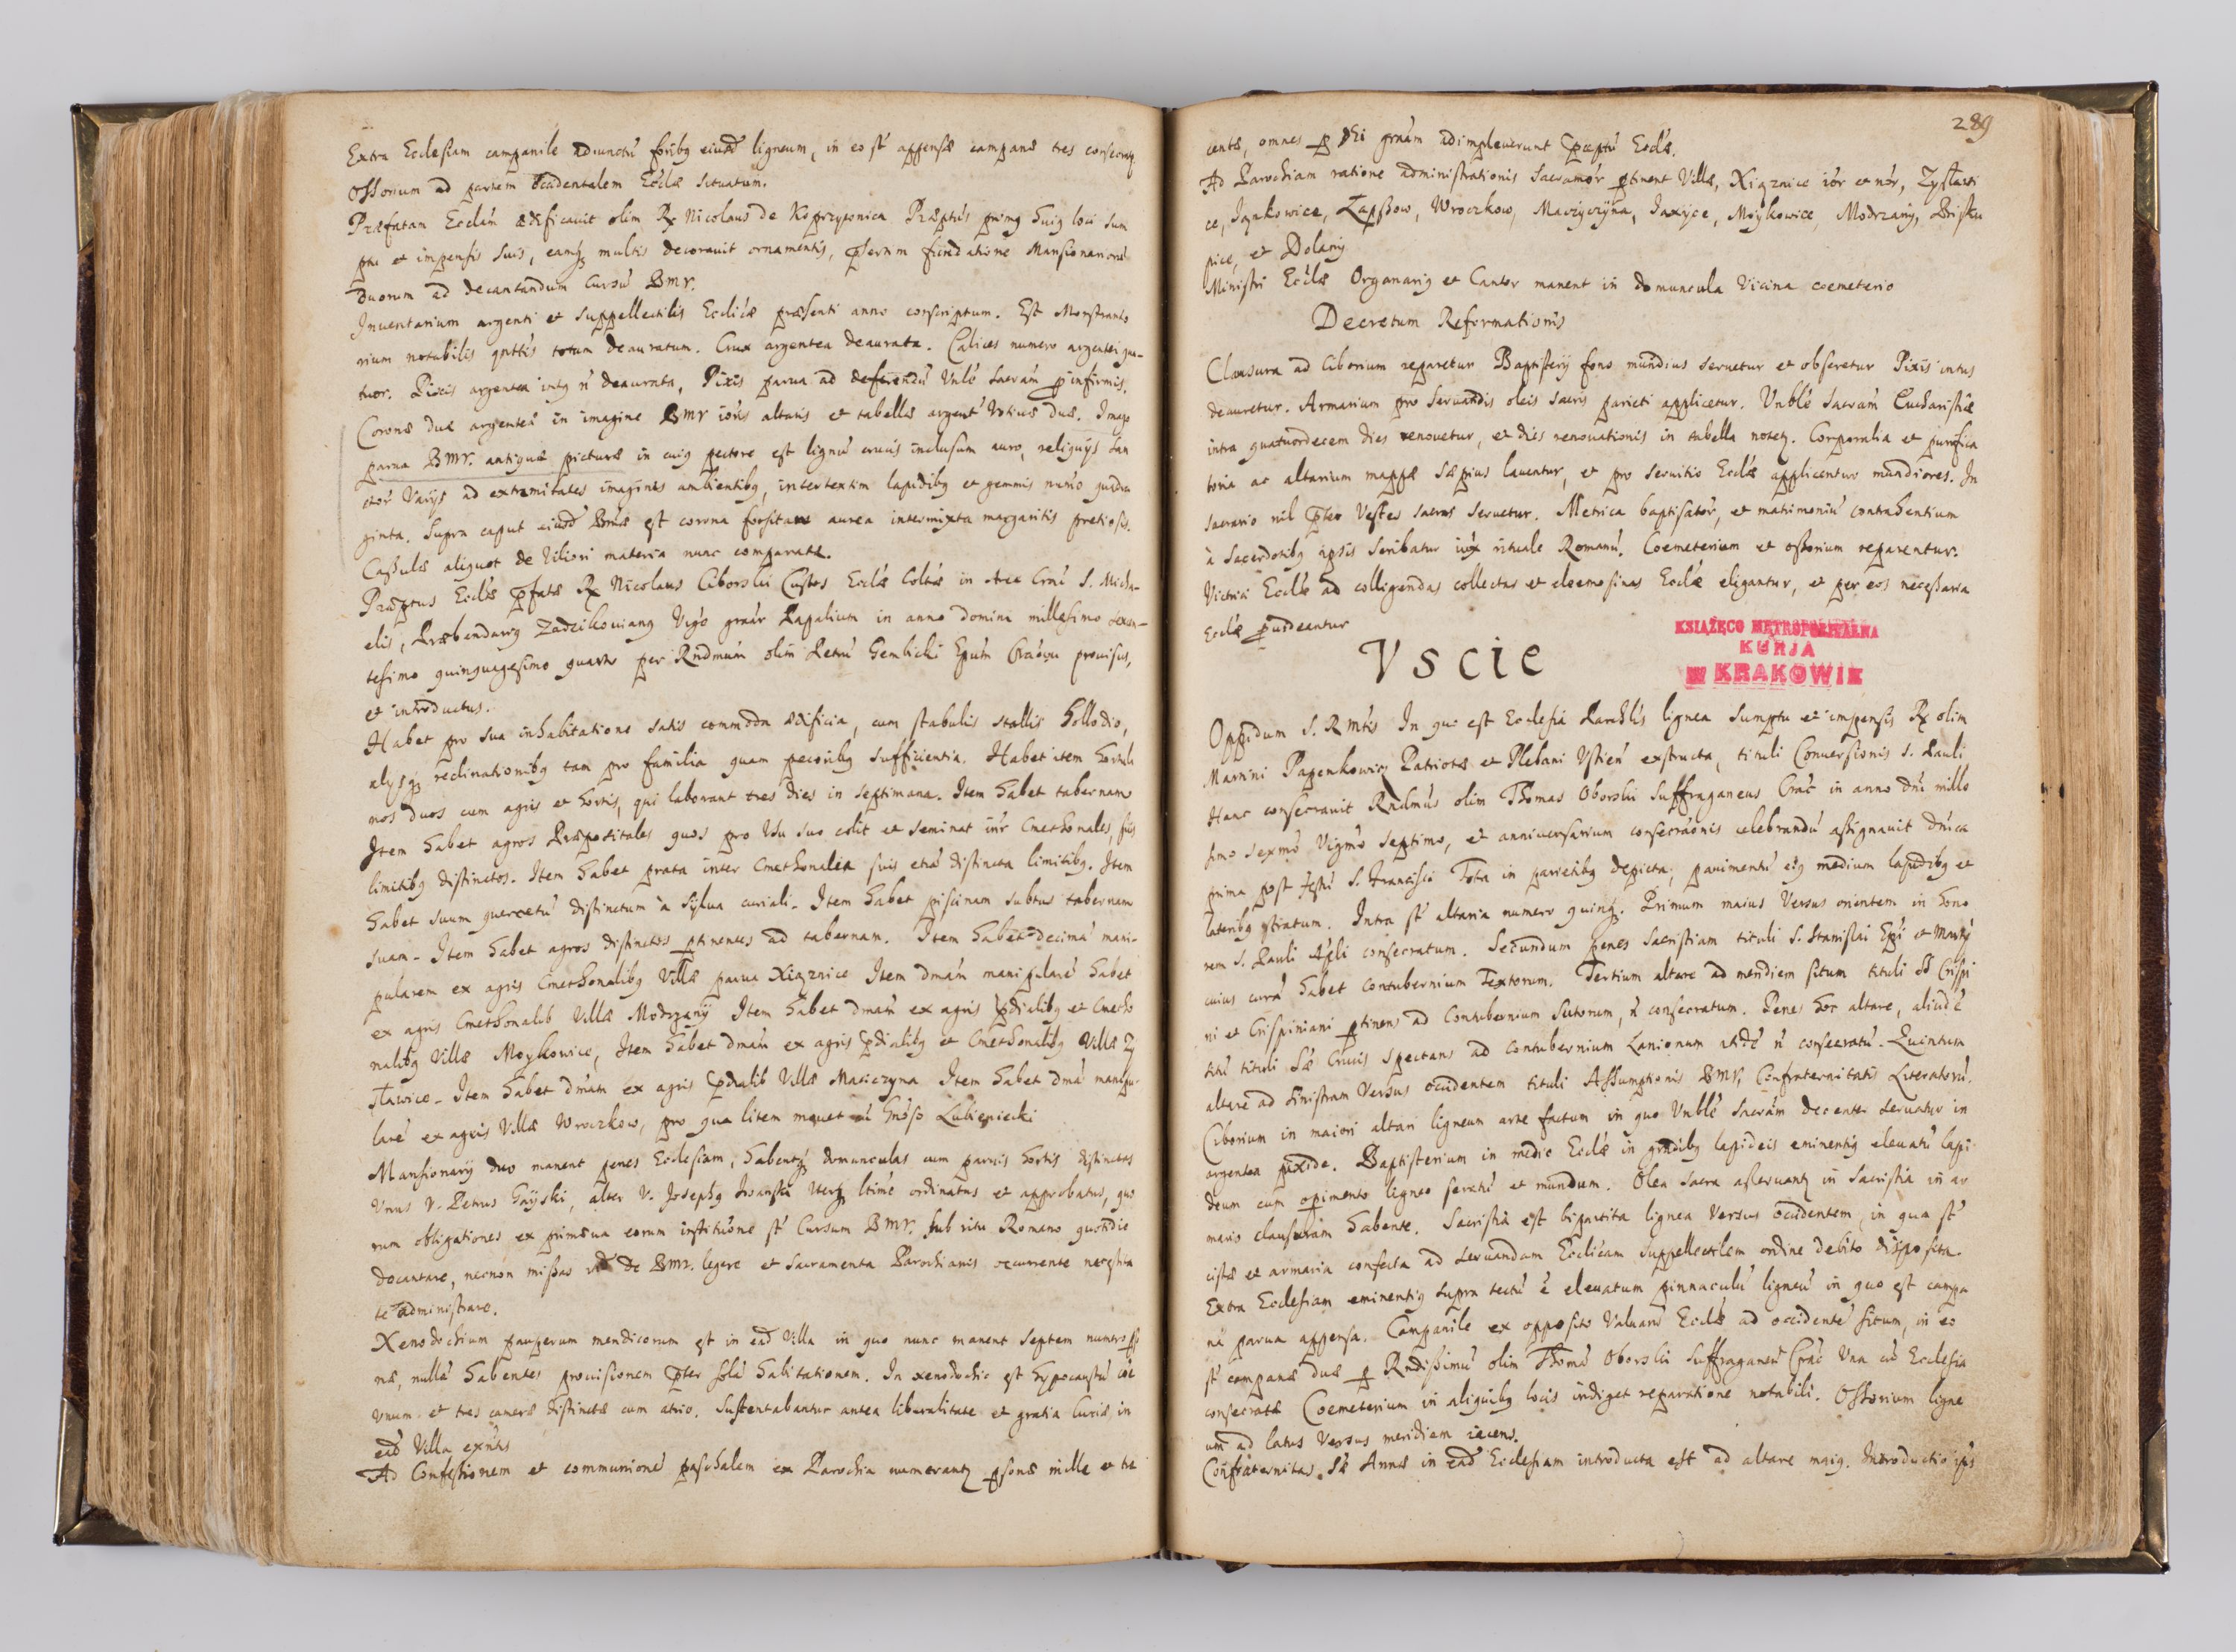 Extra Ecclesiam campanile adiunctũ foribq eiusd ligneum, in eo st̃ appensæ campanæ tres consecratę
Ossorium ad partem occidentalem Eccłæ situatum.
Præfatam Ecclám ædificauit olim Rx Nicolaus de Koprzywnica Præptús primq huiq loci sum
ptu et impensis suis, eamq3 multis decorauit ornamentis, psertim fũndatione Mansionariorũ
duorum ad decantandum Cursũ BMV.
Inuentarium argenti et suppellectilis Ecclicæ præsenti anno conscriptum. Est Monstranto
rium notabilis qntt́is totum deauratum. Crux argentea deaurata. Calices numero argentei qua-
tuor. Pixis argentea intq ñ deaurata, Pixis parua ad deferendũ Vnlé Sacrám p infirmis.
Coronæ duæ argenteæ in imagine BMV iorís altaris et tabellæ argent Votiuæ duæ. Imago
parua BMV. antiquæ picturæ in cuiq pectore est lignũ crucis inclusum auro, reliquijs San
ctor Varijs ad extremitates imaginis ambientibq, intertextim lapidibq et gemmis numo quadra
ginta. Supra caput eiusd Bmæ est corona forsitan aurea intermixta margaritis pretiosis.
Cassulæ aliquot de Viliori materia nunc comparatæ.
Præptus Eccłæ pfatæ Rx Nicolaus Oborski Custos Eccłæ Coltæ in Arce Crac S. Micha-
elis, Præbendariq Zadzikouianq Vigo gratiar Papalium in anno domini millesimo sexcen-
tesimo quinquagesimo quarto per Rndmũm olim Petrũ Gembicki Epum Cracou prouisus,
et introductus.
Habet pro sua inhabitatione satis commoda ædificia, cum stabulis stallis Hollodio,
alijsq3 reclinationibq tam pro familia quam pecoribq sufficientia. Habet item hortula
nos duos cum agris et hortis, qui laborant tres dies in septimana. Item habet tabernam
Item habet agros Præpositales quos pro Vsu suo colit et seminat intr Cmethonales, suis
limitibq distinctos. Item habet prata inter Cmethonalia suis etiã distincta limitibq. Item
habet suum quercetũ distinctum à sylua curiali. Item habet piscinam subtus tabernam
suam. Item habet agros distinctos ptinentes ad tabernam. Item habet decimã mani-
pularem ex agris Cmethonalibq Villæ parua Xiąznice Item dmám manipularẽ habet
ex agris Cmethonalib Villæ Modrzany Item habet dmám ex agris pdialibq et Cmetho
nalibq Villæ Moykowice, Item habet dmám ex agris pdialibq et Cmethonalibq Villæ Zy
sławice. Item habet dmám ex agris pdialib Villæ Maciczyna Item habet dmã manipu-
larẽ ex agris Villæ Wroczkow, pro qua litem mouet cũ Gnoso Lubieniecki
Mansionarij duo manent penes Ecclesiam, habentq3 domunculas cum paruis hortis distinctas
Vnus V. Petrus Gayski, alter V. Josephq Iwanski Vterq3 ltime ordinatus et approbatus, quo
rum obligationes ex primæua eorum institutione st̃ Cursum BMV. sub ritu Romano quotidie
decantare, necnon missas de BMV. legere et sacramenta Parochianis occurrente necessita
te administrare.
Xenodochium pauperum mendicorum est in ead Villa in quo nunc manent septem numero pso
næ, nullã habentes prouisionem pter solã habitationem. In xenodochio est hypocaustũ
vnum et tres cameræ distinctæ cum atrio. Sustentabantur antea liberalitate et gratia Curiæ in
ead Villa exntis
Ad Confessionem et communionẽ paschalem ex Parochia numerantq psonæ mille et tre
289
centæ, omnes p Dei grám adimpleuerunt pceptũ Eccłæ.
Ad Parochiam ratione administrationis Sacramor ptinent Villæ, Xiąznice ior et nor, Zysławi
ce, Jankowice, Łapszow, Wroczkow, Maczyczyna, Jaxyce, Moykowice, Modrzany, Bisku
pice, et Dolany
Ministri Eccłæ Organariq et Cantor manent in domuncula Vicina coemeterio
Decretum Reformationis
Clausura ad Ciborium reparetur Baptisterij fons mundius seruetur et obseretur Pixis intus
deauretur. Armarium pro seruandis oleis sacris parieti applicetur. Vnblé Sacrám Eucharistiæ
intra quatuordecem dies renouetur, et dies renouationis in tabella notetq. Corporalia et purifica
toria ac altarium mappæ sæpius lauentur, et pro seruitio Eccłæ applicentur mundiores. In
sacrario nil pter Vestes sacras seruetur. Metrica baptisator, et matrimoniũ contrahentium
à Sacerdotibq ipsis scribatur iux rituale Romanũ. Coemeterium et ossorium reparentur.
Victrici Eccłæ ad colligendas collectas et eleemosinas Eccłæ eligantur, et per eos necessaria
Eccłæ puideantur
KSIĄŻĘCO METROPOLITALNA
KURJA
W KRAKOWIE
Vscie
Oppidum S. R Mtis In quo est Ecclesia Parchlis lignea sumptu et impensis Rx olim
Martini Papenkowicz Patriotæ et Plebani Vstien exstructa, tituli Conuersionis S. Pauli
Hanc consecrauit Rndmus olim Thomas Oborski Suffraganeus Crac in anno dni mille
simo sexmo Vigmo septimo, et anniuersarium consecraonis celebrandũ assignauit dnica
prima post festũ S. Francisci Tota in parietibq depicta, pauimentũ eiq medium lapidibq et
lateribq stratum. Intra st̃ altaria numero quinq3. Primum maius Versus orientem in hono
rem S. Pauli Apli consecratum. Secundum penes Sacristiam tituli S. Stanislai Epi et Martÿ
cuius curã habet Contubernium Textorum. Tertium altare ad meridiem situm tituli SS Crispi
ni et Crispiniani ptinens ad Contubernium Sutorum, ñ consecratum. Penes hoc altare, aliud ẽ
titũ tituli Sæ Crucis spectans ad contubernium Lanionum itidẽ ñ consecratũ. Quintum
altare ad sinistram Versus occidentem tituli Assumptionis BMV, Confraternitatis Literatorũ.
Ciborium in maiori altari ligneum arte factum in quo Vnblé Sacrám decenter seruatur in
argentea pixide. Baptisterium in medio Eccłæ in gradibq lapideis eminentiq eleuatũ lapi
deum cum operimento ligneo seratũ et mundum. Olea sacra asseruantq in Sacristia in ar
mario clausuram habente. Sacristia est bipartita lignea Versus occidentem, in qua st̃
cistæ et armaria confecta ad seruandam Ecclicam suppellectilem ordine debito disposita.
Extra Ecclesiam eminentiq supra tectũ ẽ eleuatum pinnaculũ ligneũ in quo est campa
na parua appensa. Campanile ex opposito Valuarũ Eccłæ ad occidentẽ situm, in eo
st̃ campanæ duæ p Rndissimũ olim Thomã Oborski Suffraganeũ Crac Vna cũ Ecclesia
consecratæ Coemeterium in aliquibq locis indiget reparatione notabili. Ossorium ligne
um ad latus Versus meridiem iacens.
Confraternitas Sæ Annæ in ead Ecclesiam introducta est ad altare maiq. Introductio ipis